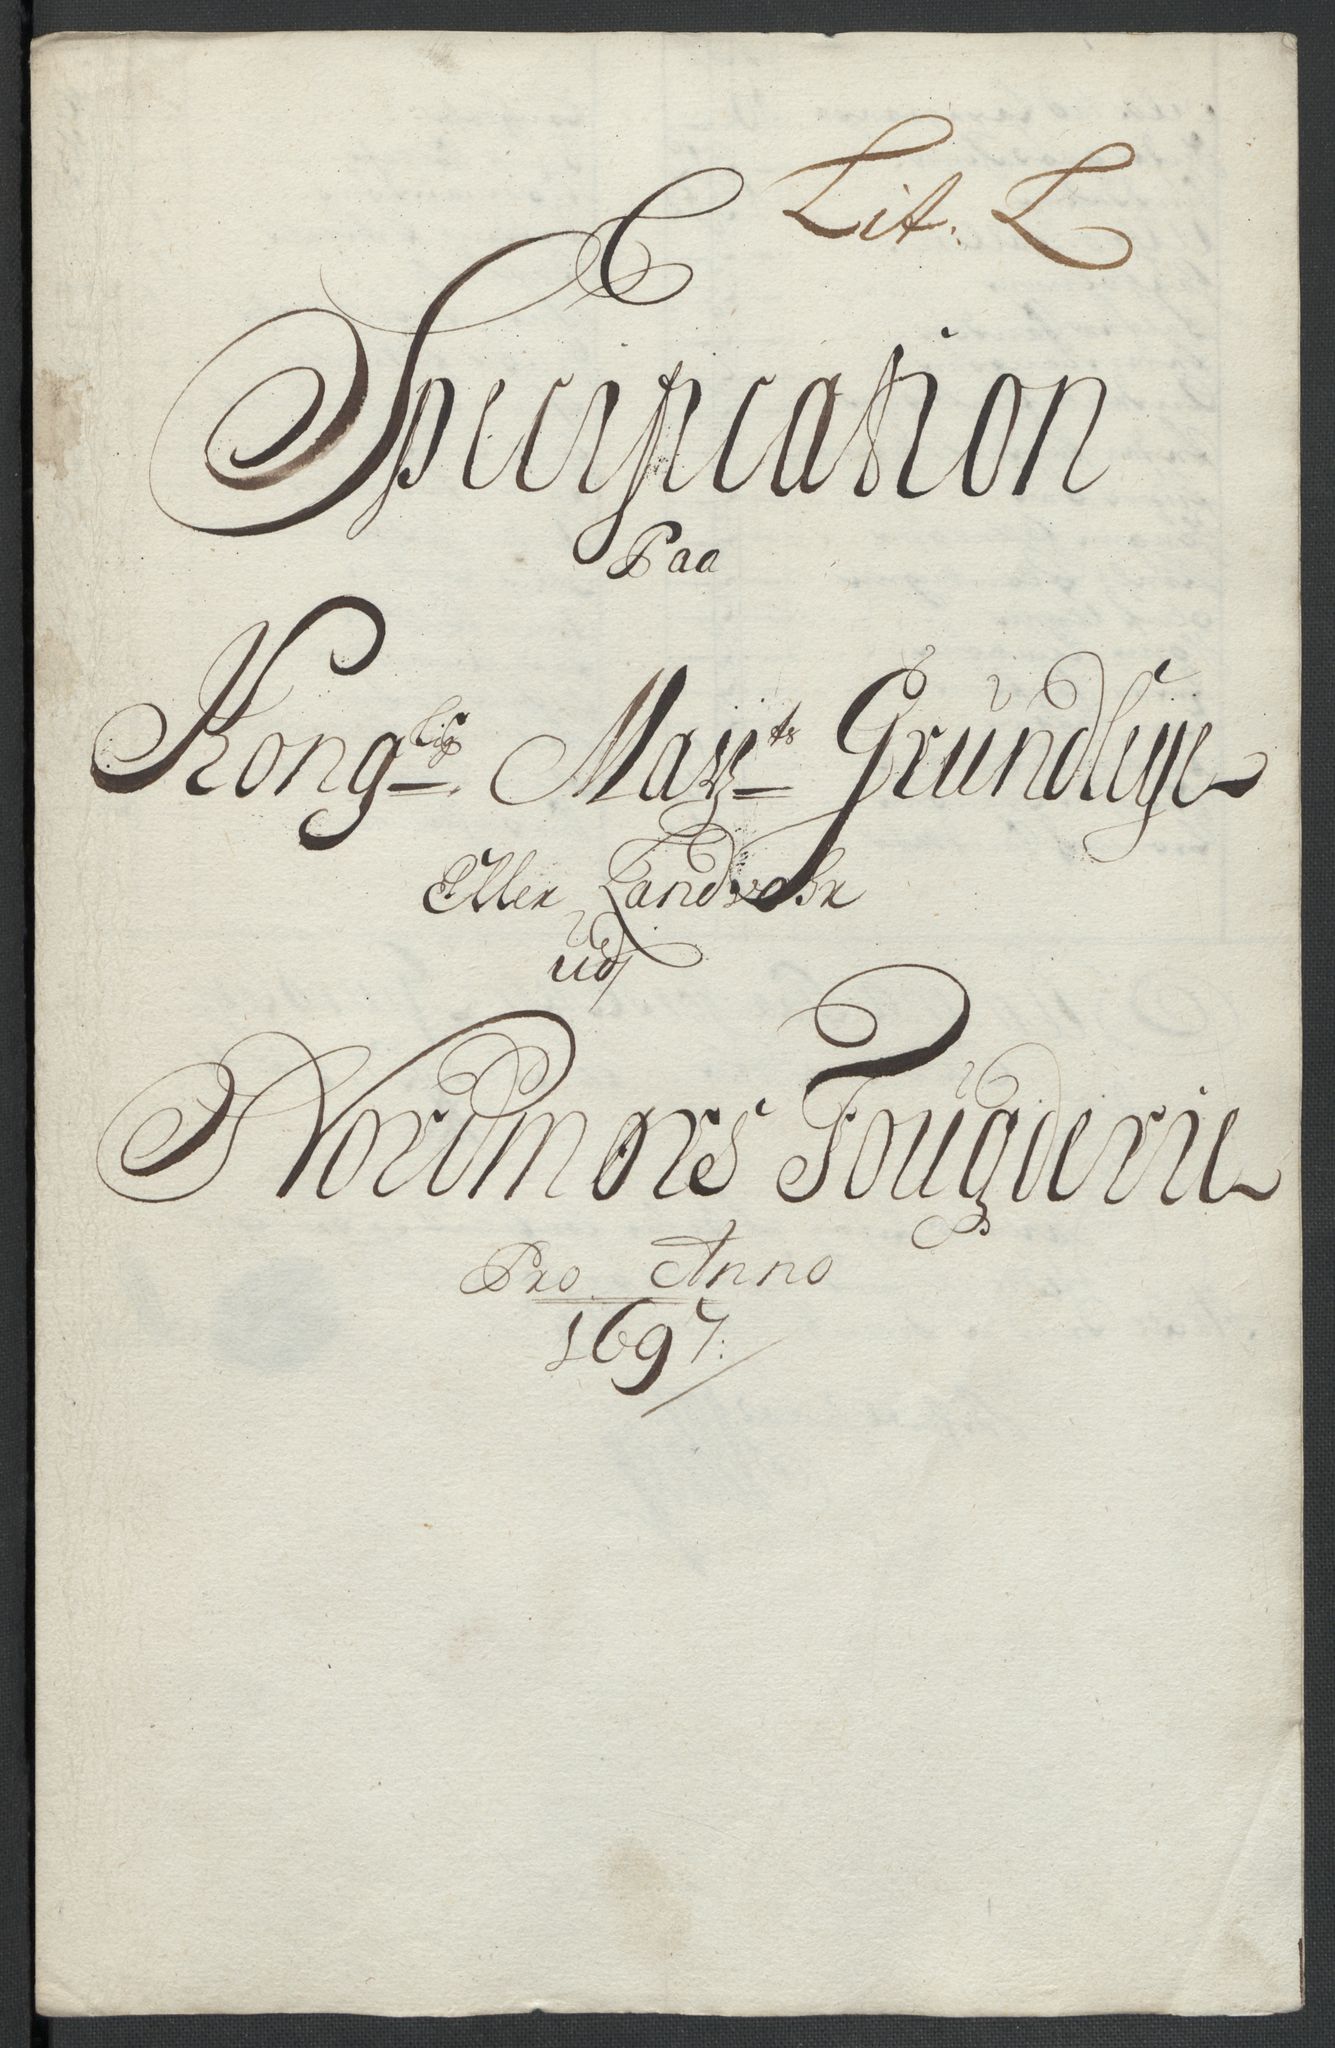 Lit. L
Specification
Paa
Konglig Mayts Grundleye
Eller Landvahr
udj
Nordmørs Fougderie
Pro Anno
1697.